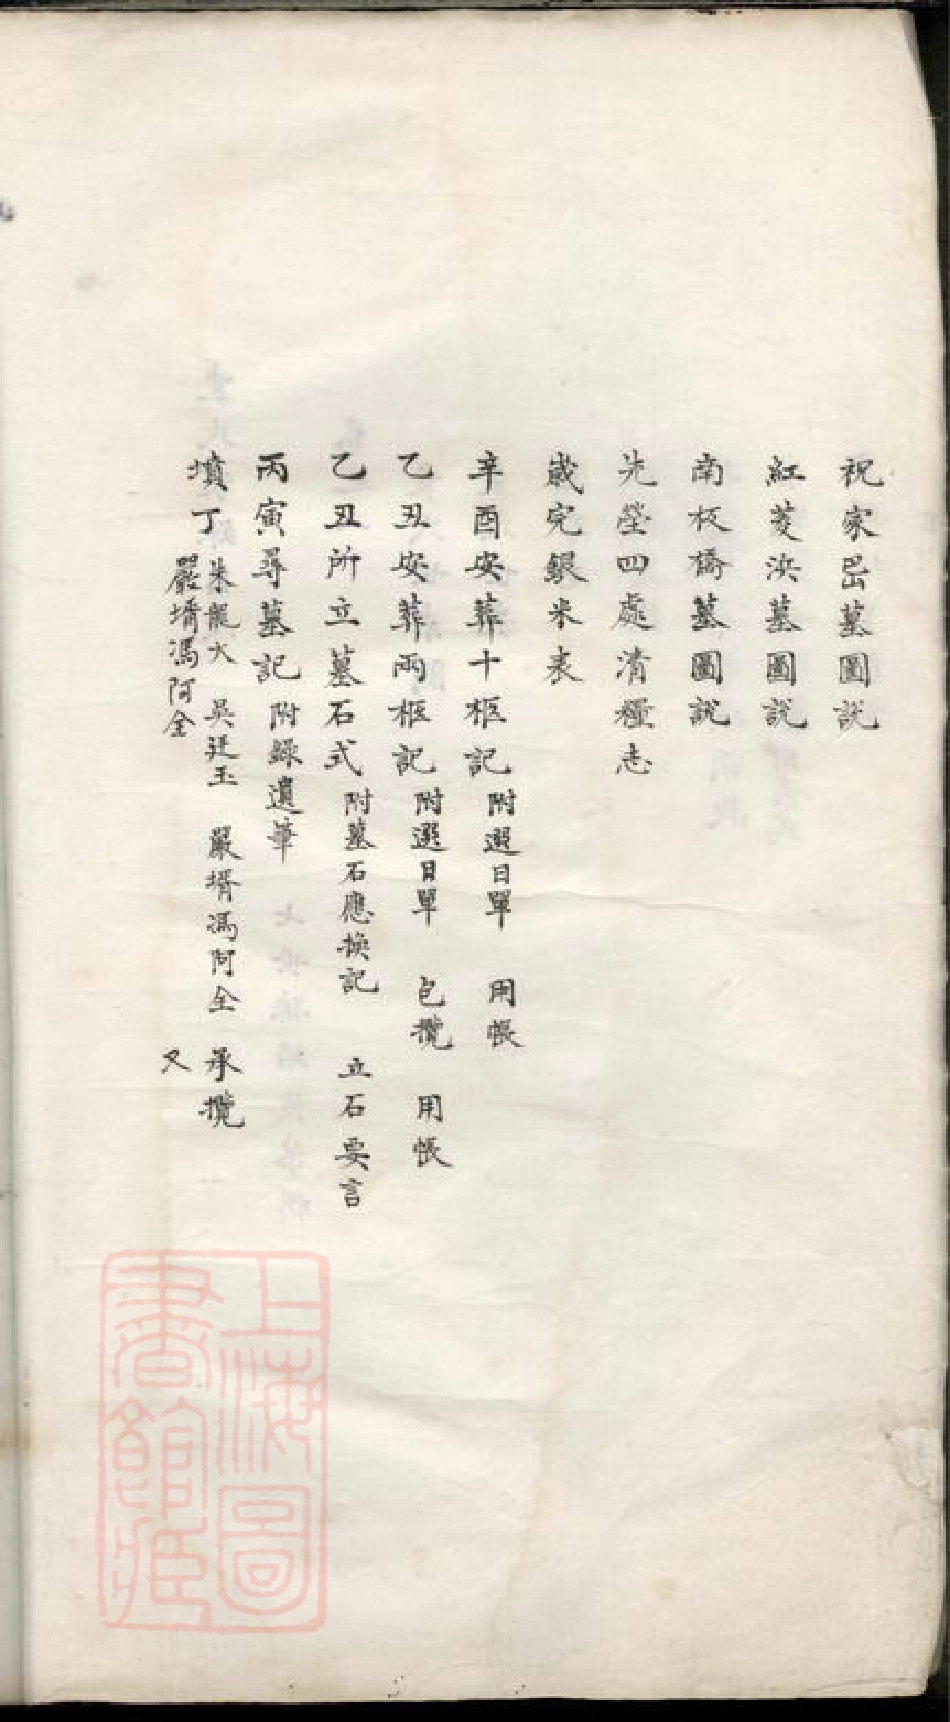 祝家邑墓圖說
紅菱浜墓圖說
南板橋墓圖說
先塋四處清糧志
歲完銀米表
辛酉安葬十柩記 附選日單 用帳
乙丑安葬兩柩記 附選日單 包攬 用帳
乙丑所立墓石式 附墓石應換記 立石要言
丙寅尋墓記 附錄遺筆
墳丁 朱龍大 吳廷玉 嚴壻馮阿全 承攬
嚴壻馮阿全 又
上海圖
書館藏